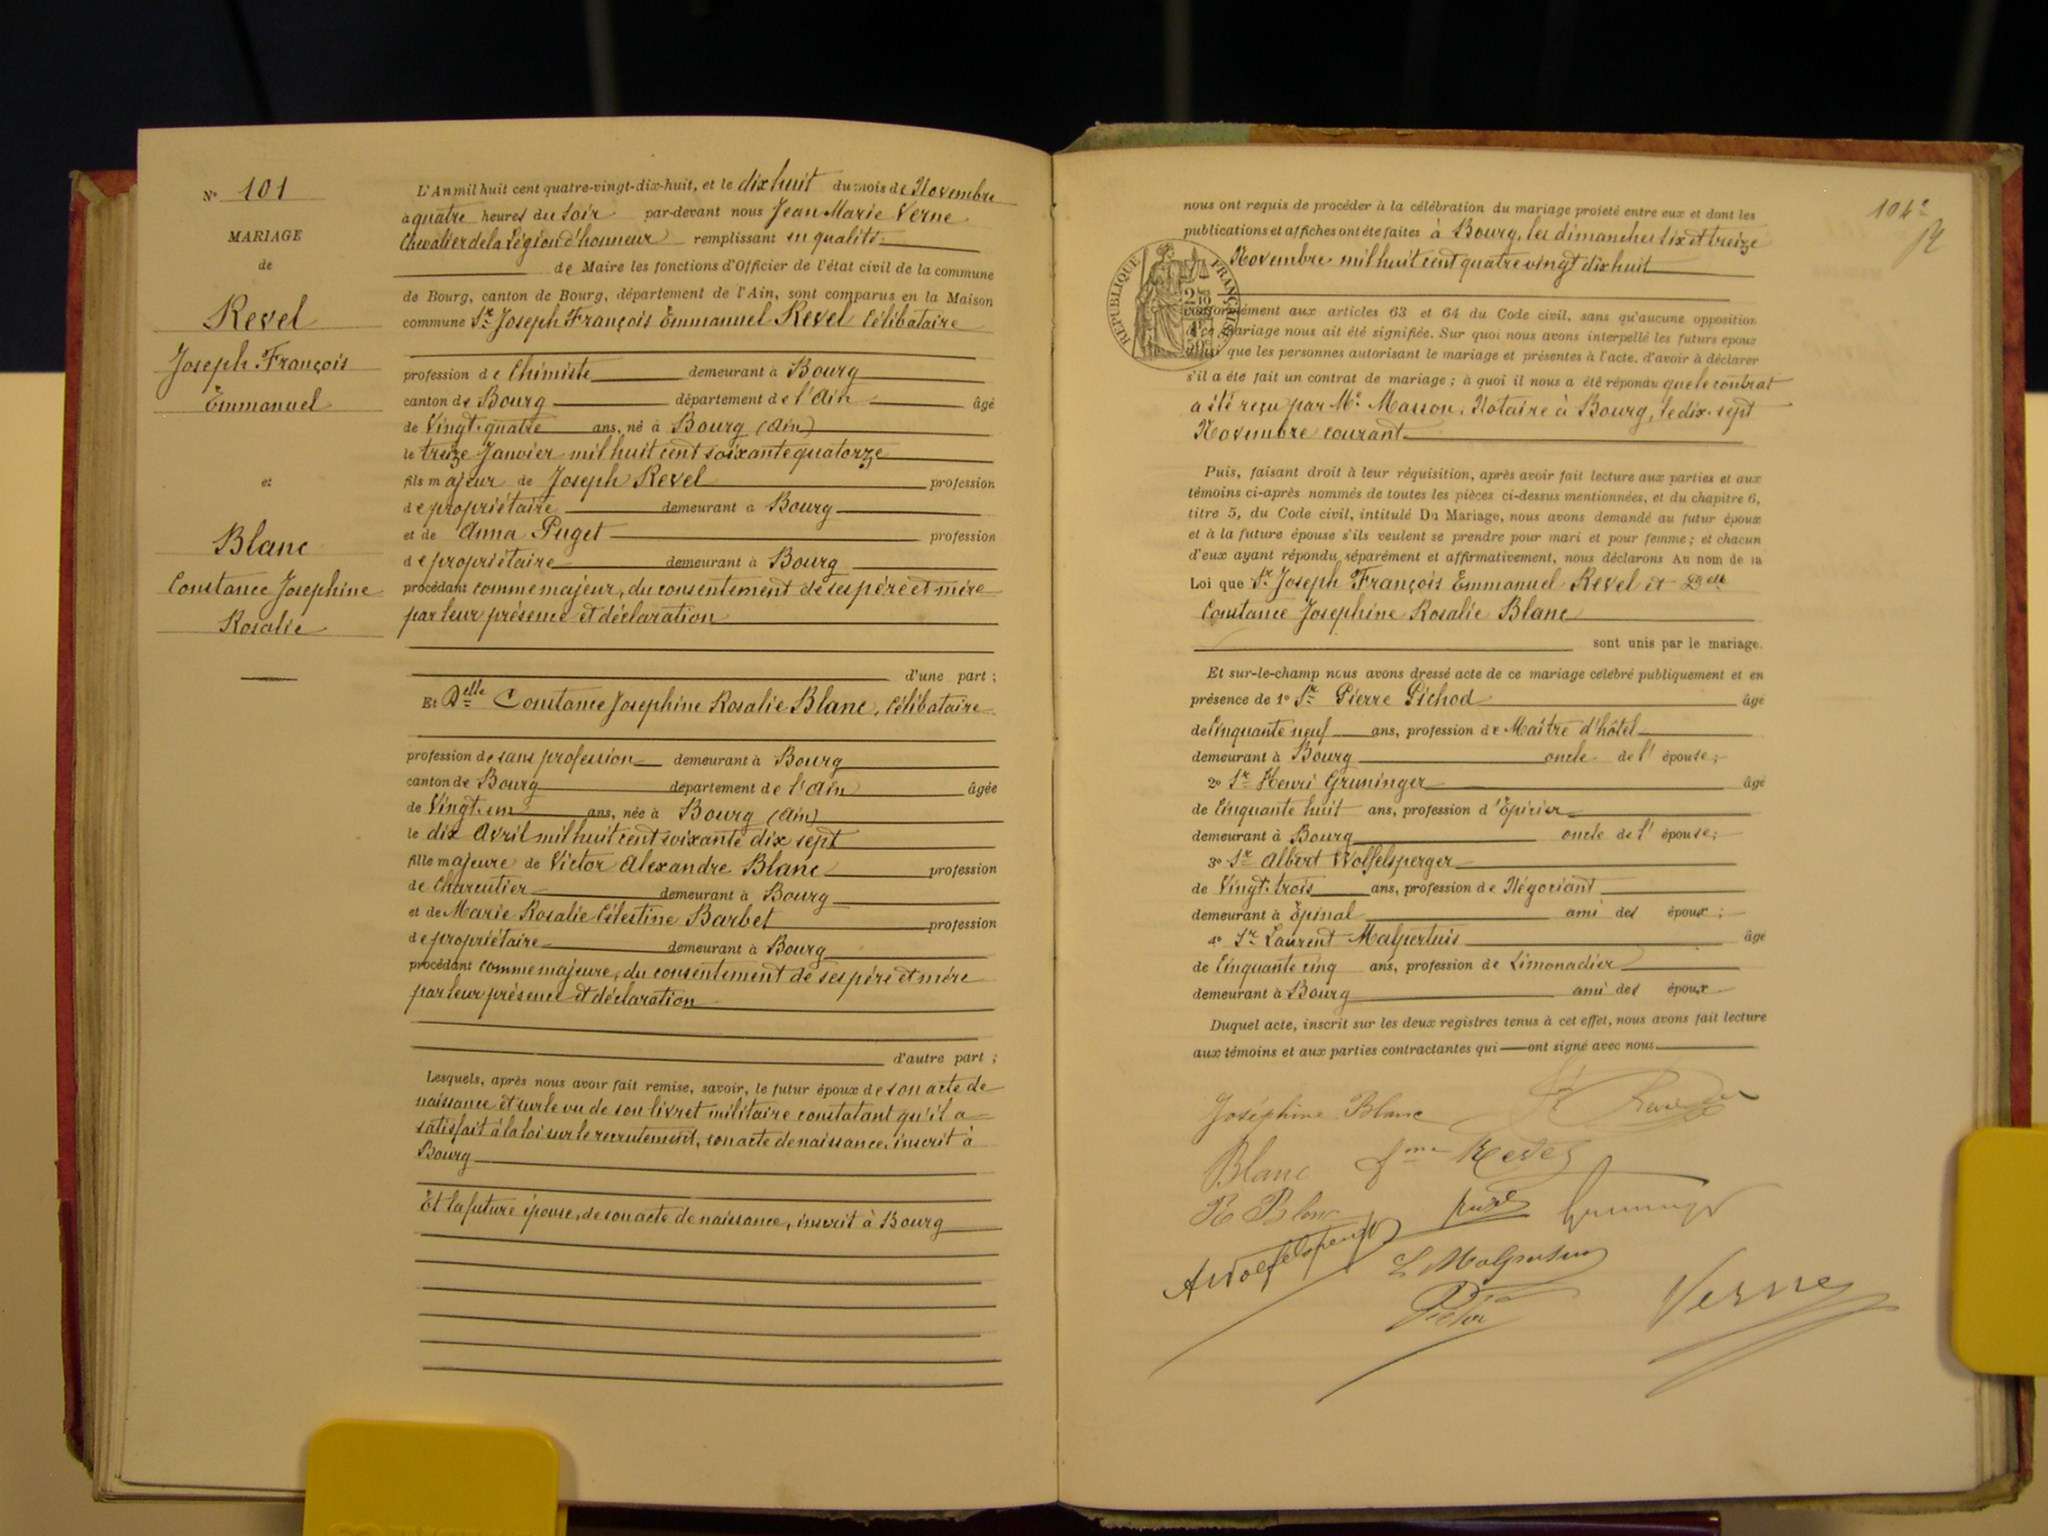 N° 101
MARIAGE
de
Revel
Joseph François
Emmanuel
et
Blanc
Constance Josephine
Rosalie
L'An mil huit cent quatre-vingt-dix-huit, et le dix huit du mois de Novembre
à quatre heures du soir par-devant nous Jean Marie Verne
Chevalier de la Légion d'honneur remplissant en qualité
de Maire les fonctions d'Officier de l'état civil de la commune
de Bourg, canton de Bourg, département de l'Ain, sont comparus en la Maison
commune Sr Joseph François Emmanuel Revel Célibataire
profession de Chimiste demeurant à Bourg
canton de Bourg département de l'Ain âgé
de Vingt-quatre ans, né à Bourg (Ain)
le treize Janvier mil huit cent soixante quatorze
fils majeur de Joseph Revel profession
de propriétaire demeurant à Bourg
et de Anna Puget profession
de propriétaire demeurant à Bourg
procédant comme majeur, du consentement de ses père et mère
par leur présence et déclaration
d'une part ;
Et Delle Constance Josephine Rosalie Blanc, Célibataire
profession de sans profession demeurant à Bourg
canton de Bourg département de l'Ain âgée
de Vingt-un ans, née à Bourg (Ain)
le dix Avril mil huit cent soixante dix sept
fille majeure de Victor Alexandre Blanc profession
de Charcutier demeurant à Bourg
et de Marie Rosalie Célestine Barbet profession
de propriétaire demeurant à Bourg
procédant comme majeure, du consentement de ses père et mère
par leur présence et déclaration
d'autre part ;
Lesquels, après nous avoir fait remise, savoir, le futur époux de son acte de
naissance et sur le vu de son livret militaire constatant qu'il a
satisfait à la loi sur le recrutement, son acte de naissance, inscrit à
Bourg
Et la future épouse, de son acte de naissance, inscrit à Bourg
104e
nous ont requis de procéder à la célébration du mariage projeté entre eux et dont les
publications et affiches ont été faites à Bourg, les dimanches six et treize
Novembre mil huit cent quatre vingt dix huit
RÉPUBLIQUE FRANÇAISE
conformément aux articles 63 et 64 du Code civil, sans qu'aucune opposition
à ce mariage nous ait été signifiée. Sur quoi nous avons interpellé les futurs époux
ainsi que les personnes autorisant le mariage et présentes à l'acte, d'avoir à déclarer
s'il a été fait un contrat de mariage ; à quoi il nous a été répondu que le contrat
a été reçu par Me Masson, Notaire à Bourg, le dix-sept
Novembre courant
Puis, faisant droit à leur réquisition, après avoir fait lecture aux parties et aux
témoins ci-après nommés de toutes les pièces ci-dessus mentionnées, et du chapitre 6,
titre 5, du Code civil, intitulé Du Mariage, nous avons demandé au futur époux
et à la future épouse s'ils veulent se prendre pour mari et pour femme ; et chacun
d'eux ayant répondu séparément et affirmativement, nous déclarons Au nom de la
Loi que Sr Joseph François Emmanuel Revel et Delle
Constance Josephine Rosalie Blanc
sont unis par le mariage.
Et sur-le-champ nous avons dressé acte de ce mariage célébré publiquement et en
présence de 1° Sr Pierre Pichod âgé
de Cinquante neuf ans, profession de Maître d'hôtel
demeurant à Bourg oncle de l'épouse ;
2° Sr Henri Gruninger âgé
de Cinquante huit ans, profession d'Épicier
demeurant à Bourg oncle de l'épouse ;
3° Sr Albert Wolfelsperger
de Vingt-trois ans, profession de Négociant
demeurant à Épinal ami des époux ;
4° Sr Laurent Malpertuis âgé
de Cinquante cinq ans, profession de Limonadier
demeurant à Bourg ami des époux
Duquel acte, inscrit sur les deux registres tenus à cet effet, nous avons fait lecture
aux témoins et aux parties contractantes qui ont signé avec nous
Joséphine Blanc
Blanc Revel
R Blanc Gruninger
A Wolfelsperger
L Malpertuis
Verne